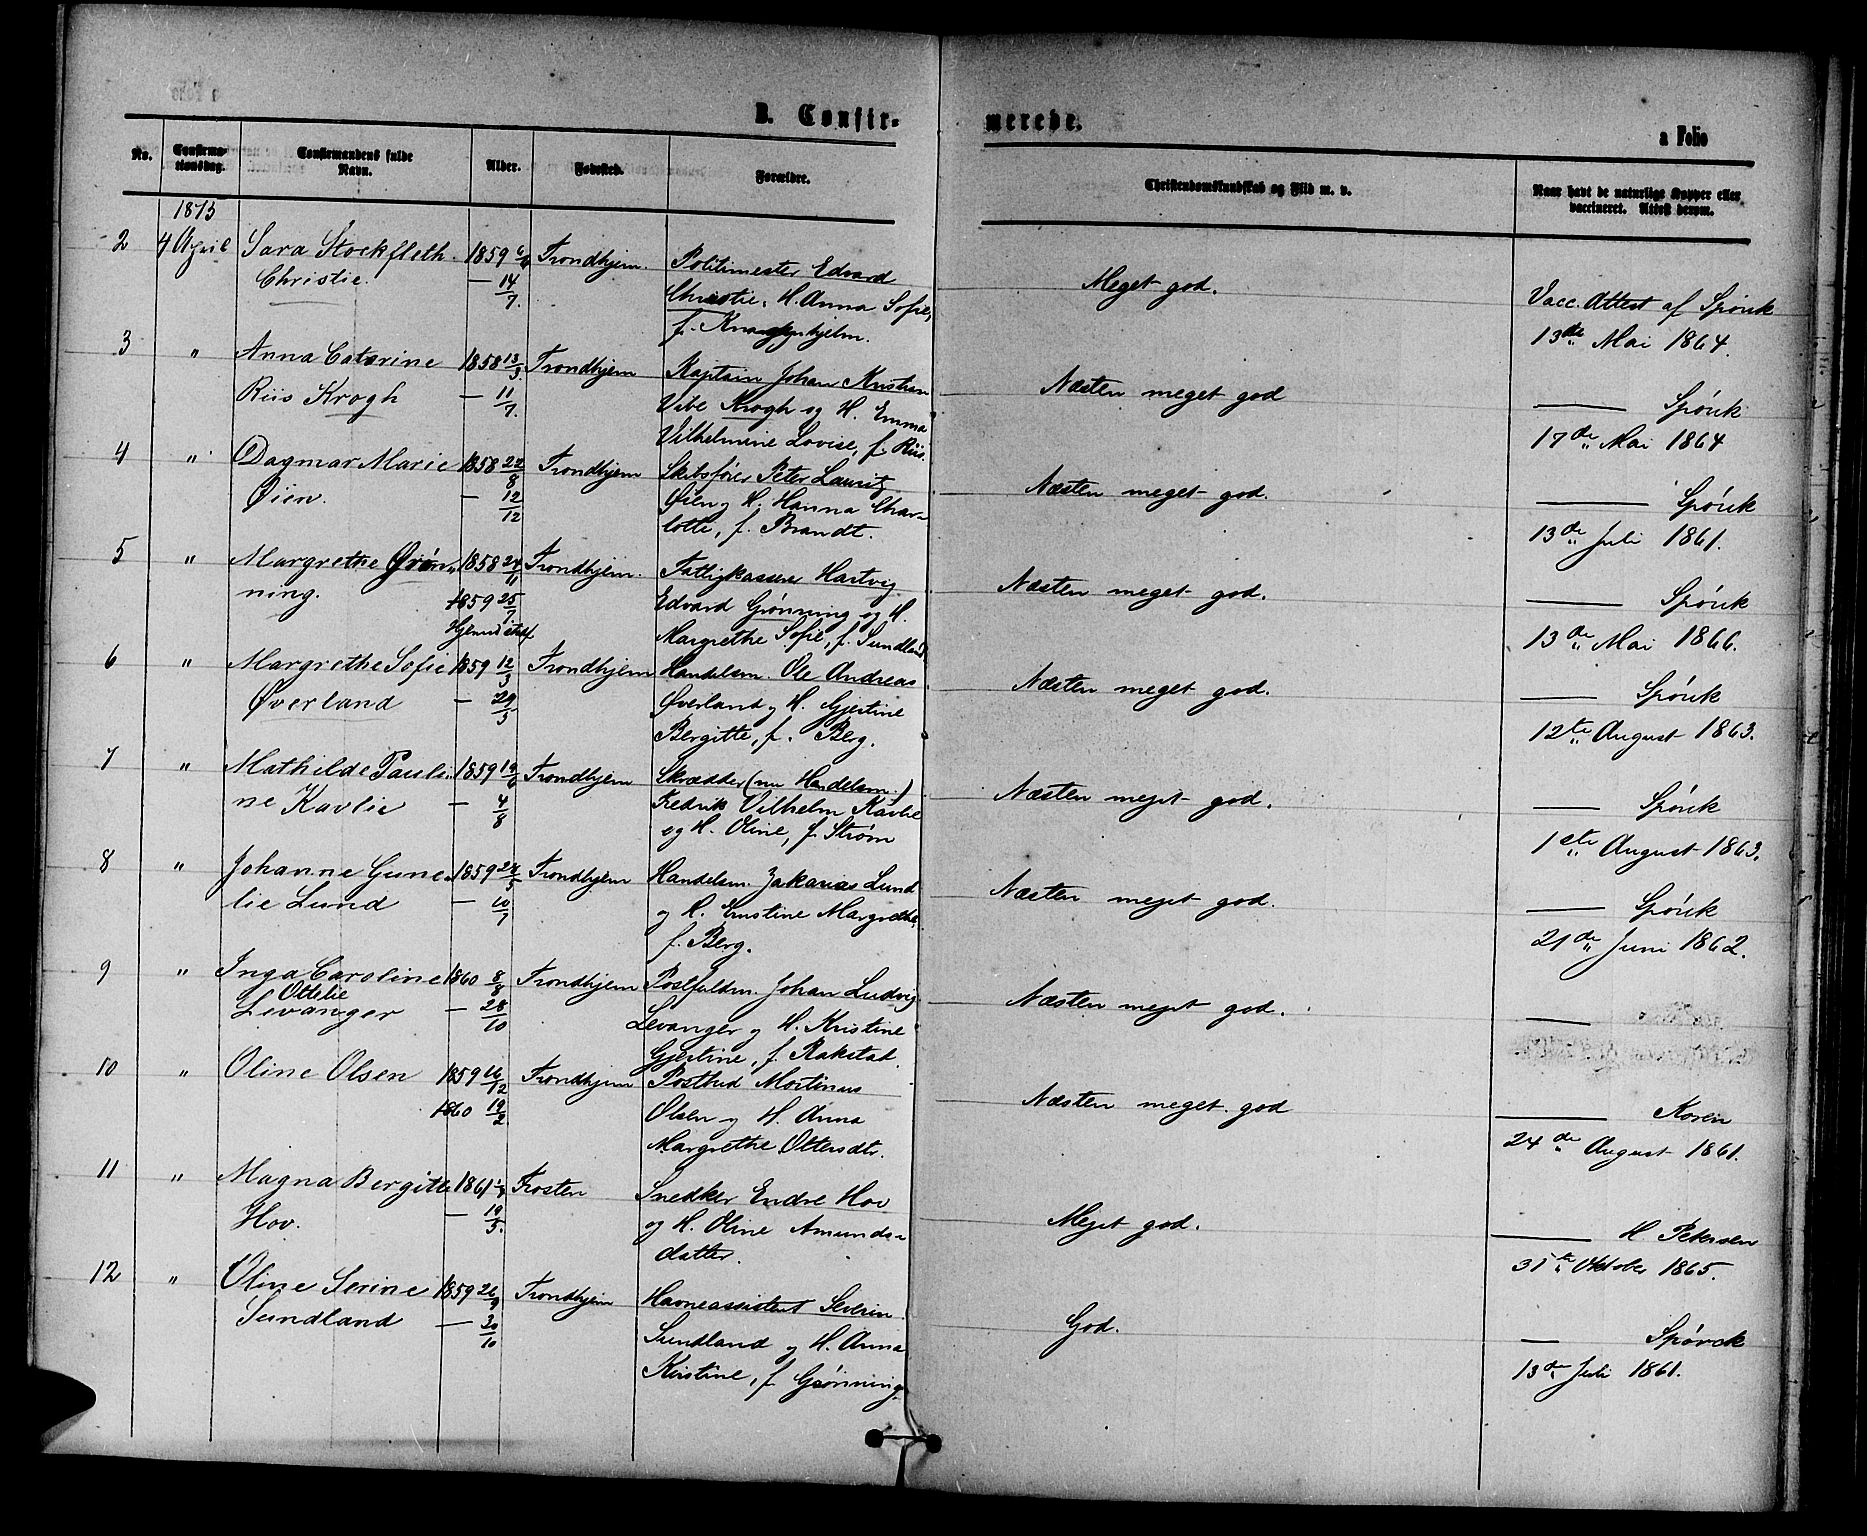 B. Confir-
merede.
a Folio
No.
Confirma-
tionsdag.
Confirmandens fulde
Navn.
Alder.
Fødested.
Forældre.
Christendomskundskab og Flid m. v.
Naar havt de naturlige Kopper eller
vaccineret. Attest derom.
1875
2 4 April Sara Stockfleth 1859 6/6 Trondhjem. Politimester Edvard
Christie. — 14/7. Christie, H. Anna Sofie,
f. Knagenhjelm.
Meget god.
Vacc. Attest af Spörck
13de Mai 1864.
3 " Anna Catarine 1858 13/3. Trondhjem Kaptain Johan Kristian
Riis Krogh — 11/7. Vibe Krogh og H. Emma
Vilhelmine Lovise, f. Riis.
Næsten meget god
— Spörck
17de Mai 1864
4 " Dagmar Marie 1858 22/8 Trondhjem Skibsfører Peter Lauritz
Øien. — 12/12 Øien og H. Hanna Char-
lotte, f. Brandt.
Næsten meget god.
— Spörck
13de Juli 1861.
5 " Margrethe Grøn- 1858 24/11 Trondhjem. Fattigkasserer Hartvig
ning. 1859 25/7 Edvard Grønning og H.
Hjemmedøbt Margrethe Sofie, f. Sundland
Næsten meget god.
— Spörck
13de Mai 1866.
6 " Margrethe Sofie 1859 12/3 Trondhjem Handelsm. Ole Andreas
Øverland — 29/5 Øverland og H. Gjertine
Bergitte, f. Berg.
Næsten meget god.
— Spörck
12te August 1863.
7 " Mathilde Pauli- 1859 19/6 Trondhjem Skrædder (nu Handelsm.)
ne Kavlie — 4/8 Fredrik Vilhelm Kavlie
og H. Oline, f. Strøm
Næsten meget god.
— Spörck
1ste August 1863.
8 " Johanne Gune- 1859 24/5 Trondhjem Handelsm. Zakarias Lund
lie Lund — 10/7 og H. Ernstine Margrethe,
f. Berg.
Næsten meget god.
— Spörck
21de Juni 1862.
9 " Inga Caroline 1860 8/8 Trondhjem Postfuldm. Johan Ludvig
Ottelie
Levanger — 28/10 Levanger og H. Kristine
Gjertine, f. Rakstad.
Næsten meget god.
—
10 " Oline Olsen 1859 16/12 Trondhjem Postbud Martinus
1860 19/2 Olsen og H. Anna
Margrethe Ottersdtr.
Næsten meget god
— Koren
24de August 1861.
11 " Magna Bergitte 1861 1/3 Frosten Snedker Endre Hov
Hov. — 19/5. og H. Oline Amunds-
datter.
Meget god.
— H Petersen
31te Oktober 1865.
12 " Oline Serine 1859 26/9 Trondhjem Havneassistent Severin
Sundland — 30/10 Sundland og H. Anna
Kirstine, f. Grønning.
God.
— Spörck
13de Juli 1861.